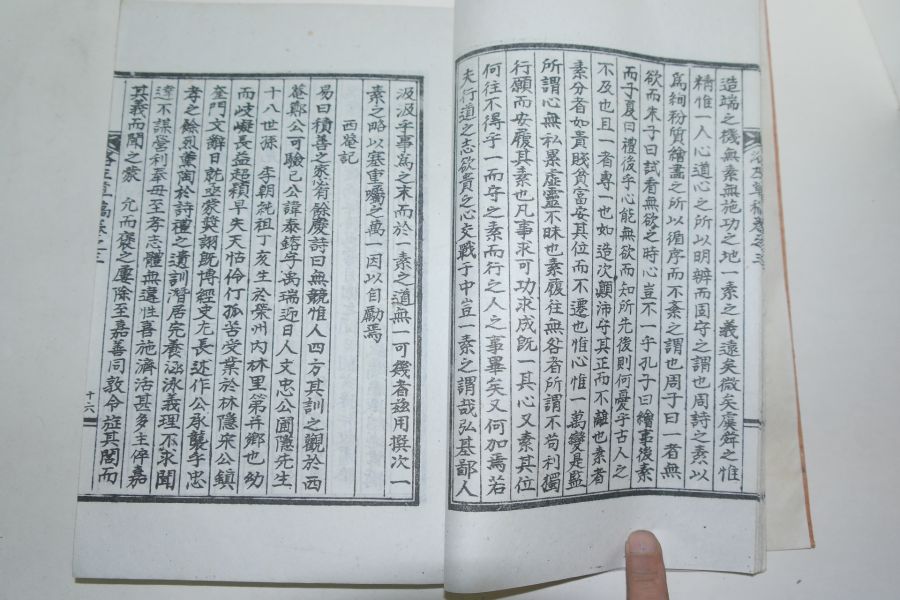 造端之機無素無施功之地一素之義遠矣微矣虞錊之惟
精惟一人心道心之所以明辨而固守之謂也周詩之素以
爲絢粉質繪畵之所以循序而不紊之謂也周子曰一者無
欲而朱子曰試看無欲之時心豈不一乎孔子曰繪事後素
而子夏曰禮後乎心能無欲而知所先後則何憂乎古人之
不及也且一者專一也如造次顚沛守其正而不離也素者
素分者如貴賤貧富安其位而不遷也惟心惟一萬變是監
所謂心無私累虛靈不昧也素履往無咎者所謂不苟利獨
行願而安履其素也凡事求可功求成旣一其心又素其位
何往不得子一而守之素而行之人之事畢矣又何加焉若
夫行道之志欲貴之心交戰于中豈一素之謂哉弘基鄙人
汲汲乎事爲之末而於一素之道無一可幾者玆用撰次一
素之略以塞重囑之萬一因以自勵焉
西菴記
易曰積善之家有餘慶詩曰無競惟人四方其訓之觀於西
菴鄭公可驗已公諱泰錡字禹瑞近日人文忠公圃隱先生
十八世孫 李朝純祖丁亥生於榮州內林里第卉鄕也幼
而岐嶷長益超穎早失天怙伶仃孤苦受業於林隱宋公鎭
奎門文辭日就亟蒙奬詡旣博經史尤長述作公承襲乎忠
孝之餘烈薰陶於詩禮之遺訓潛居完養涵泳義理不求聞
達不謀營利奉母至孝志體無違性喜施濟活甚多主倅嘉
其義而聞之蒙 允而褒之屢除至嘉善同敦令旌其閭而
十六